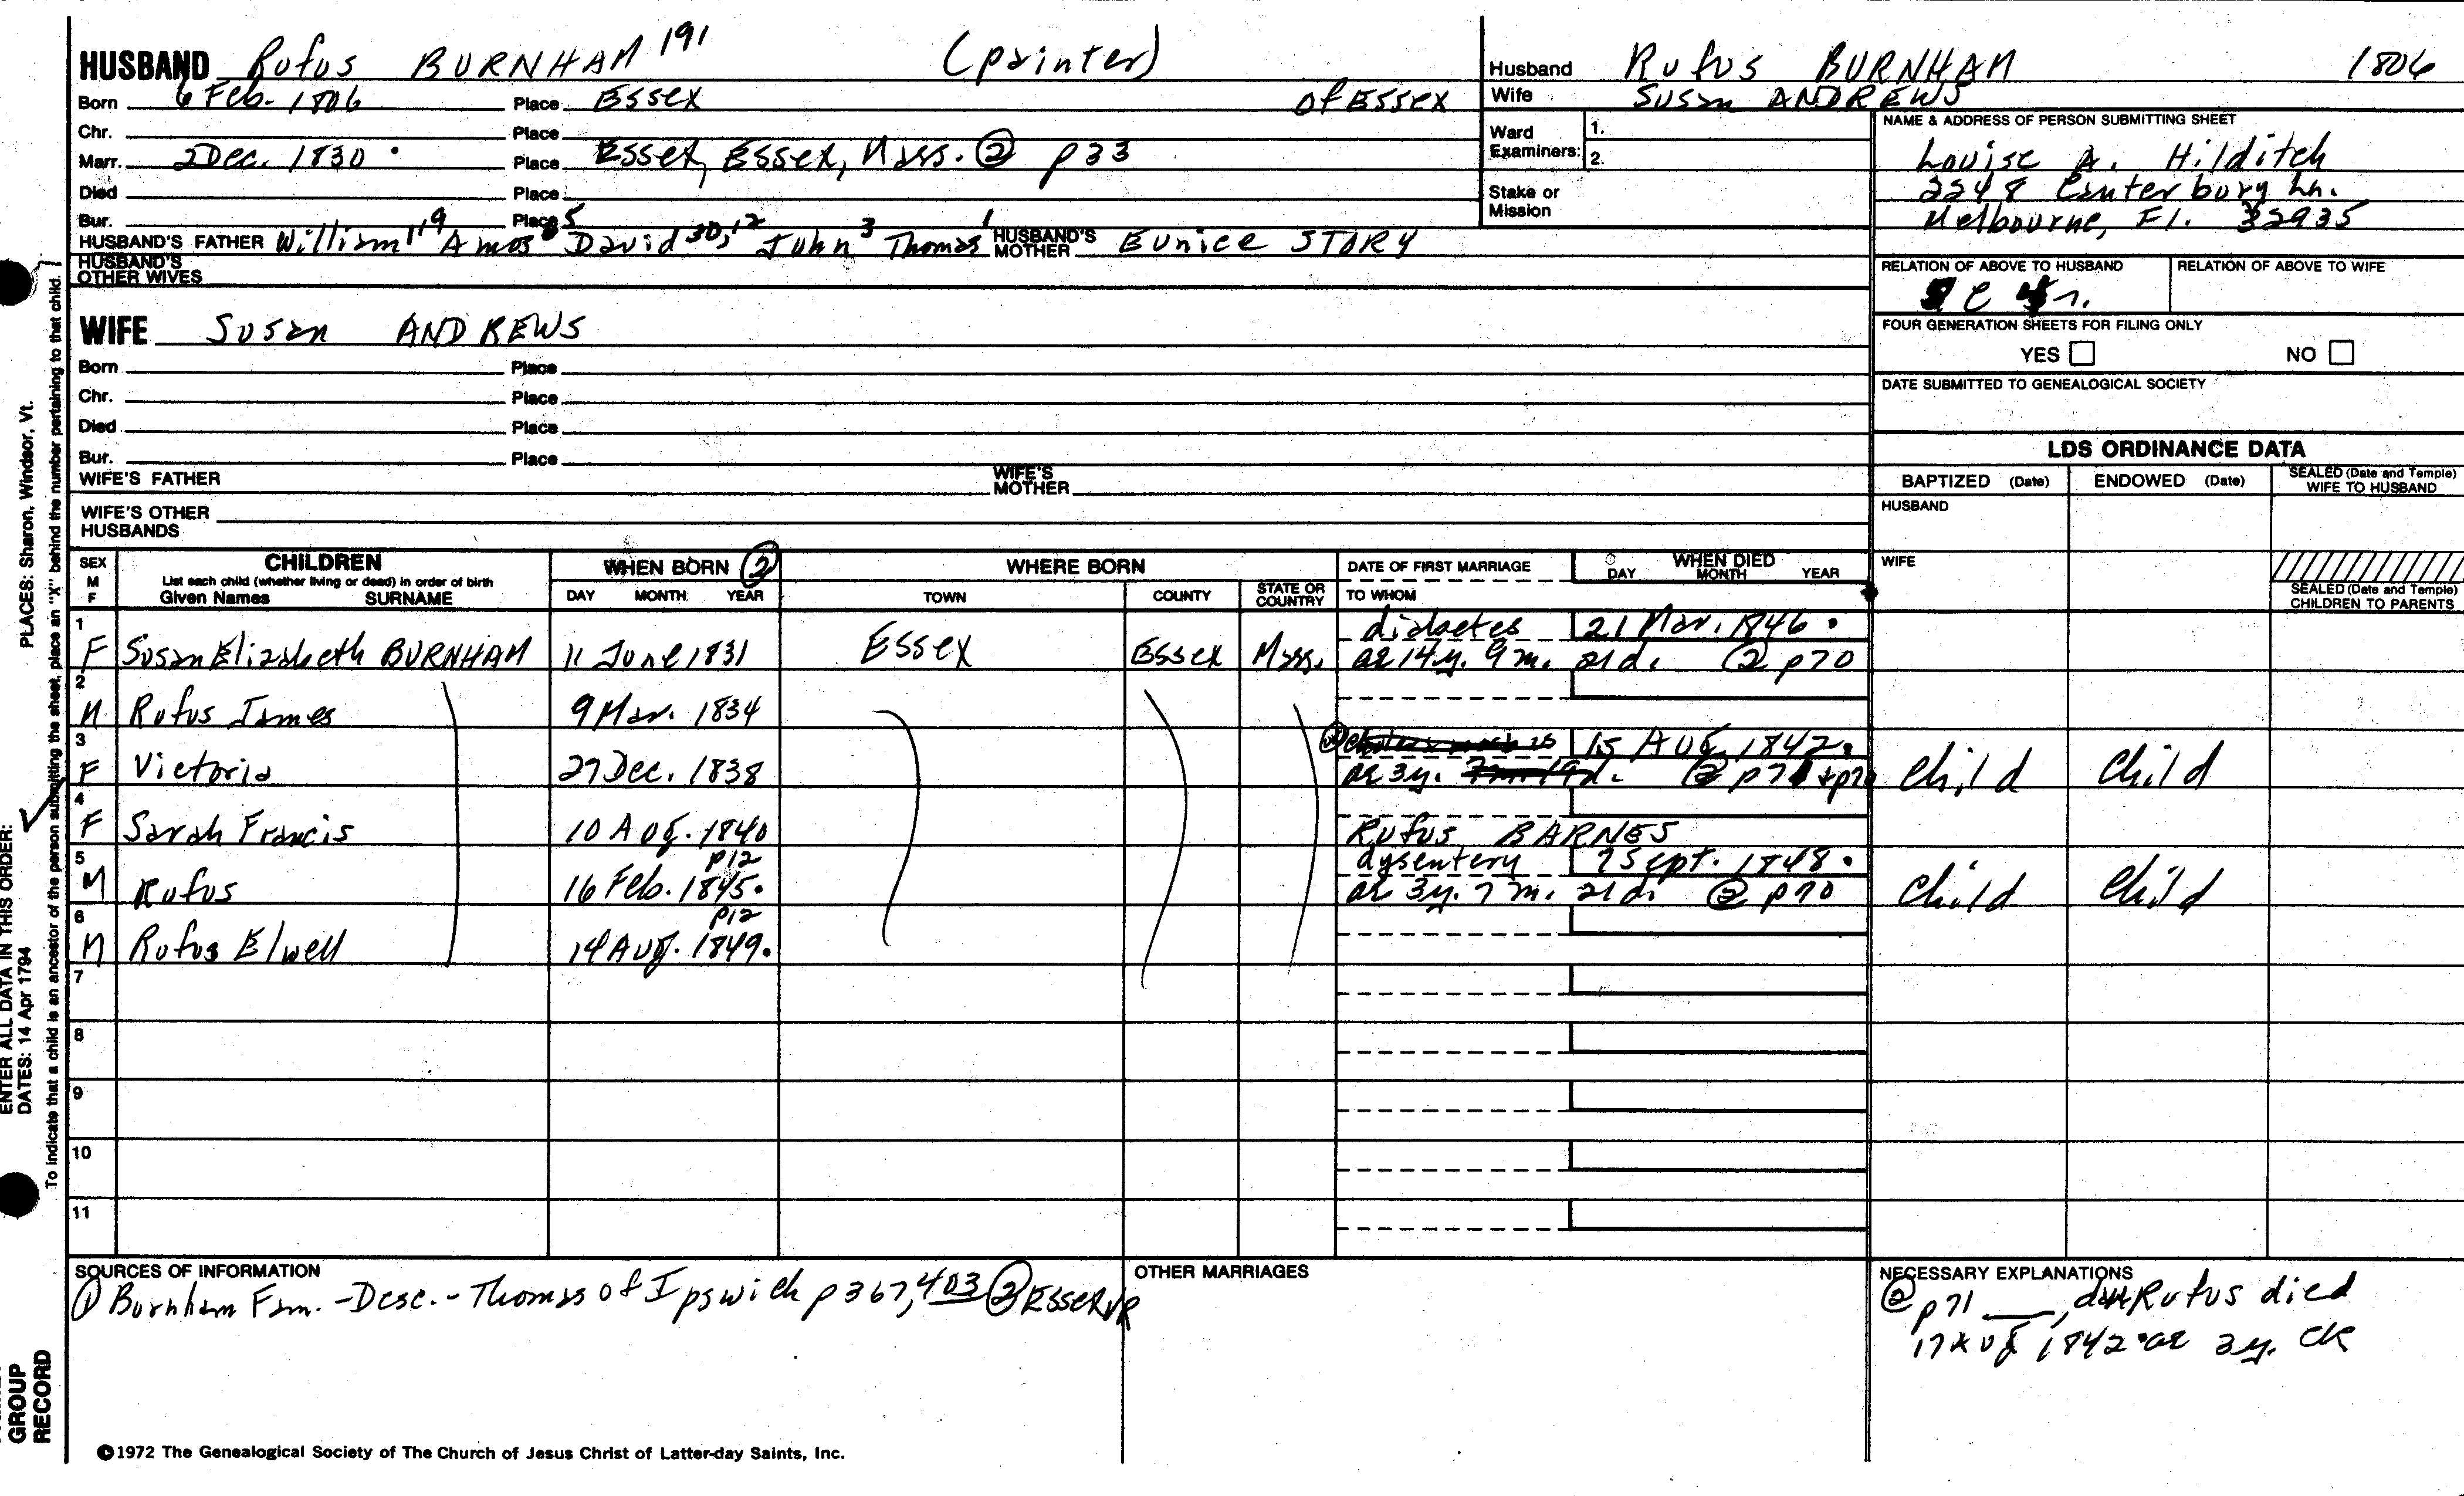 HUSBAND Rufus BURNHAM 191 (painter)
Born 6 Feb. 1806 Place Essex of Essex
Chr. Place
Marr. 2 Dec. 1830 Place Essex, Essex, Mass. ② p33
Died Place
Bur. Place
HUSBAND'S FATHER William 119 Amos 5 David 30,12 John 3 Thomas 1 HUSBAND'S MOTHER Eunice STORY
HUSBAND'S OTHER WIVES
WIFE Susan ANDREWS
Born Place
Chr. Place
Died Place
Bur. Place
WIFE'S FATHER WIFE'S MOTHER
WIFE'S OTHER HUSBANDS
Husband Rufus BURNHAM 1806
Wife Susan ANDREWS
Ward Examiners: 1. 2.
Stake or Mission
NAME & ADDRESS OF PERSON SUBMITTING SHEET
Louise A. Hilditch
2248 Canterbury Ln.
Melbourne, Fl. 32935
RELATION OF ABOVE TO HUSBAND RELATION OF ABOVE TO WIFE
FOUR GENERATION SHEETS FOR FILING ONLY
YES NO
DATE SUBMITTED TO GENEALOGICAL SOCIETY
LDS ORDINANCE DATA
BAPTIZED (Date) ENDOWED (Date) SEALED (Date and Temple) WIFE TO HUSBAND
HUSBAND
WIFE
SEALED (Date and Temple) CHILDREN TO PARENTS
SEX M F CHILDREN WHEN BORN ② WHERE BORN DATE OF FIRST MARRIAGE WHEN DIED
List each child (whether living or dead) in order of birth
Given Names SURNAME DAY MONTH YEAR TOWN COUNTY STATE OR COUNTRY TO WHOM DAY MONTH YEAR
1 diabetes 21 Mar. 1846
F Susan Elizabeth BURNHAM 11 June 1831 Essex Essex Mass. ae 14 y. 9 m. 21 d. ② p70
2
M Rufus James 9 Mar. 1834
3 15 Aug. 1842
F Victoria 27 Dec. 1838 ae 3y. ② p71 + p70 Child Child
4
F Sarah Francis 10 Aug. 1840 Rufus BARNES
5 p12 dysentery 7 Sept. 1848
M Rufus 16 Feb. 1845 ae 3y. 7 m. 21 d. ② p70 Child Child
6 p12
M Rufus Elwell 14 Aug. 1849
7
8
9
10
11
SOURCES OF INFORMATION
① Burnham Fam. - Desc. - Thomas of Ipswich p 367, 403 ② Essex VR
OTHER MARRIAGES
NECESSARY EXPLANATIONS
② p71 ___, Rufus died
17 Aug 1842 ae 3y. CK
©1972 The Genealogical Society of The Church of Jesus Christ of Latter-day Saints, Inc.
PLACES: Sharon, Windsor, Vt.
ENTER ALL DATA IN THIS ORDER:
DATES: 14 Apr 1794
To indicate that a child is an ancestor of the person submitting the sheet, place an "X" behind the number pertaining to that child.
GROUP
RECORD